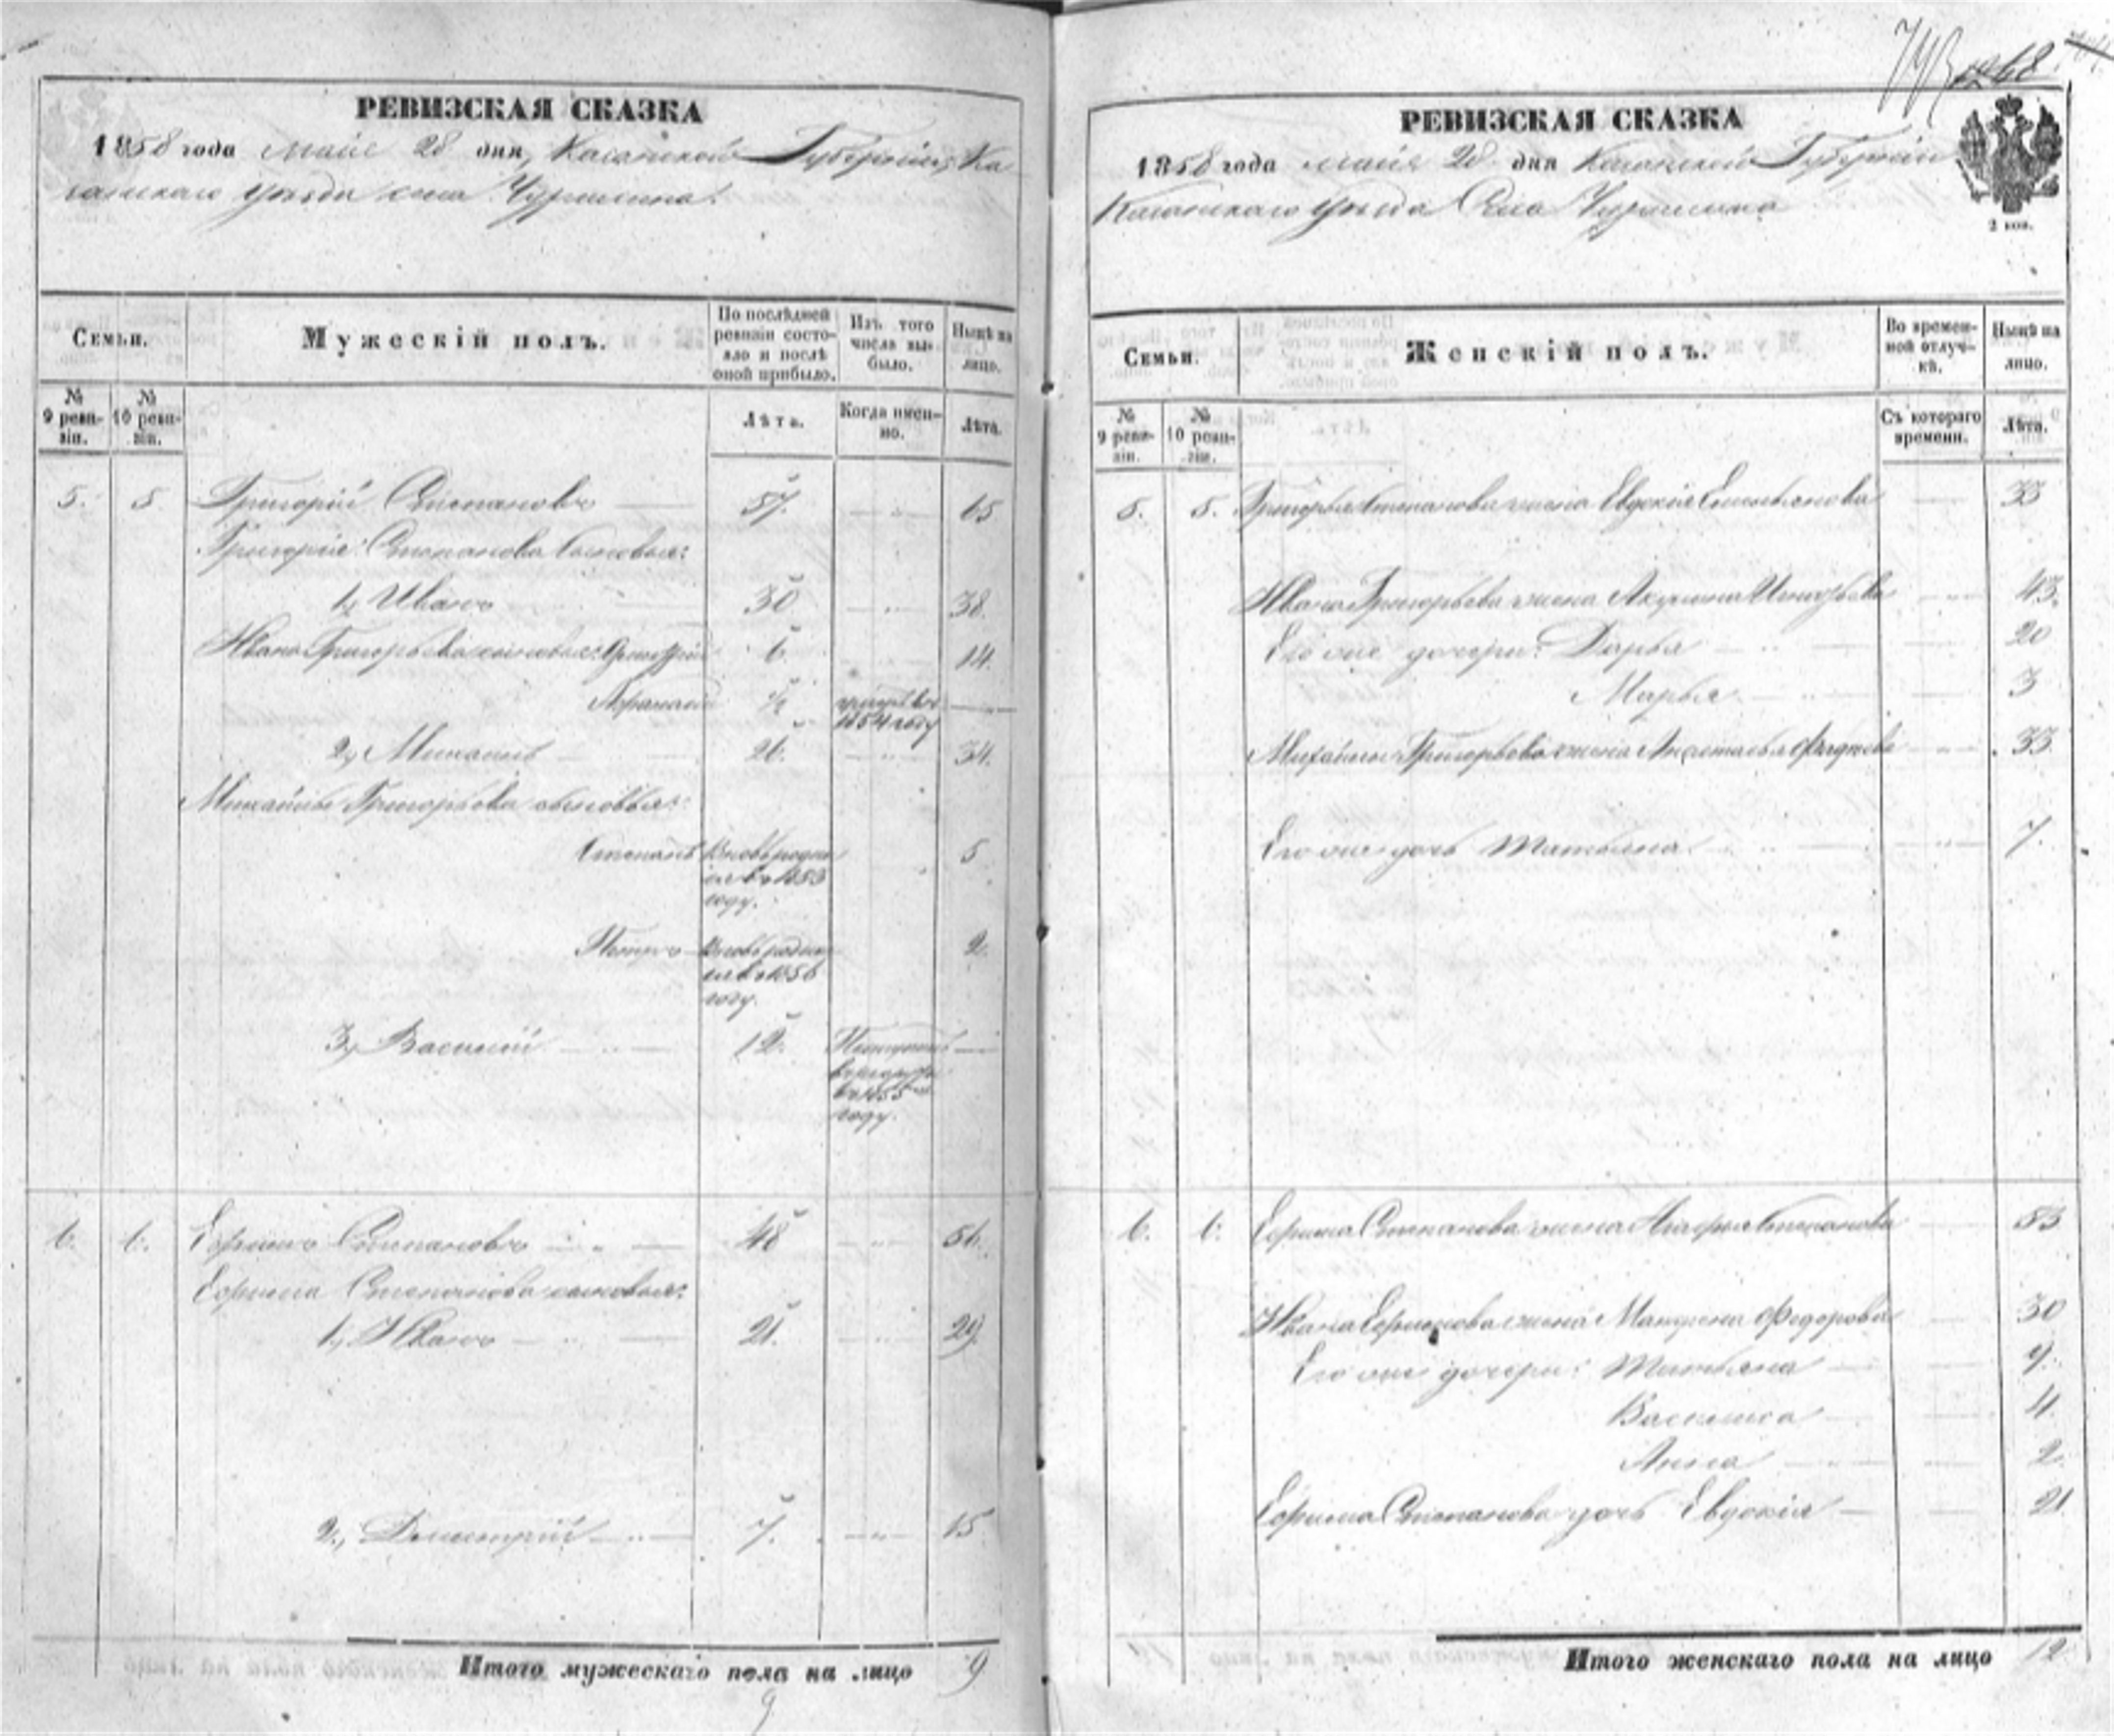 РЕВИЗСКАЯ СКАЗКА
1858 года мая 28 дня, Казанской Губернии, Ка
занского уезда села Чурилина.
Семьи.
Мужескій полъ.
По послѣдней ревизіи состояло и послѣ оной прибыло.
Изъ того числа выбыло.
Нынѣ на лицо.
№ 9 ревизіи.
№ 10 ревизіи.
Лѣта.
Когда именно.
Лѣта.
5. 5 Григорій Степановъ 57. 65
Григорія Степанова сыновья:
1, Иванъ 30 38.
Ивана Григорьева сыновья: Григорій 6. 14.
1854 году
2, Михаилъ 26. 34.
Михайлы Григорьева сыновья:
Степанъ Вновь родился въ 1853 году. 5
Петръ Вновь родился въ 1856 году. 2.
3, Василій 12. Поступилъ въ 1855 году.
6. 6. Ефимъ Степановъ 48 56.
Ефима Степанова сыновья:
1, Иванъ 21. 29.
2, Дмитрій 7. 15.
Итого мужескаго пола на лицо 9
9
743
РЕВИЗСКАЯ СКАЗКА
1858 года мая 28 дня Казанской Губерніи
Казанскаго уезда Села Чурилина
2 коп.
Семьи.
Женскій полъ.
Во временной отлучкѣ.
Нынѣ на лицо.
№ 9 ревизіи.
№ 10 ревизіи.
Съ котораго времени.
Лѣта.
5. 5. Григорья Степанова жена Евдокія Емельянова 53
Ивана Григорьева жена Акулина 43.
Его же дочери: Дарья 20
Марья 3
Михайлы Григорьева жена Анастасья 33
Его же дочь Татьяна 7.
6. 6. Ефима Степанова жена Степанова 53
Ивана Ефимова жена Матрена Федорова 30
Его же дочери: Татьяна 9.
Василиса 4.
Анна 2.
Ефима Степанова дочь Евдокія 21
Итого женскаго пола на лицо 12.